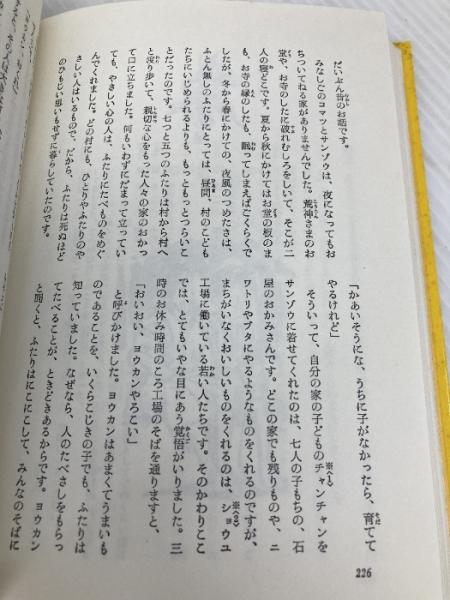 だいぶん昔のお話です。
みなしごのコマツとサンゾウは、夜になってもお
ちついてねる家がありませんでした。荒神さまのお
堂や、お寺のしたに破れむしろをしいて、そこが二
人の寝どこです。夏から秋にかけてはお堂の板のま
も、お寺の縁のしたも、眠ってしまえばごくらくで
したが、冬から春にかけての、夜風のつめたさは、
ふとん無しのふたりにとっては、昼間、村のこども
たちにいじめられるよりも、もっともっとつらいこ
とだったのです。七つと五つのふたりは村から村へ
と渡り歩いて、親切な心をもった人々の家のおかっ
て口に立ちました。何もいわずにだまって立ってい
ても、やさしい心の人は、ふたりにたべものをめぐ
んでくれました。どの村にも、ひとりやふたりのや
さしい人はいるもので、だから、ふたりは死ぬほど
のひもじい思いもせずに暮らしていたのです。
「かあいそうにな、うちに子がなかったら、育てて
やるけれど」
そういって、自分の家の子どものチャンチャンを
サンゾウに着せてくれたのは、七人の子もちの、石
屋のおかみさんです。どこの家でも残りものや、ニ
ワトリやブタにやるようなものをくれるのですが、
まちがいなくおいしいものをくれるのは、ショウユ
工場に働いている若い人たちです。そのかわりここ
では、とてもいやな目にあう覚悟がいりました。三
時のお休み時間のころ工場のそばを通りますと、
「おいおい、ヨウカンやろこい」
と呼びかけました。ヨウカンはあまくてうまいも
のであることを、いくらこじきの子でも、ふたりは
知っていました。なぜなら、人のたべさしをもらっ
てたべることが、ときどきあるからです。ヨウカン
と聞くと、ふたりはにこにこして、みんなのそばに
226